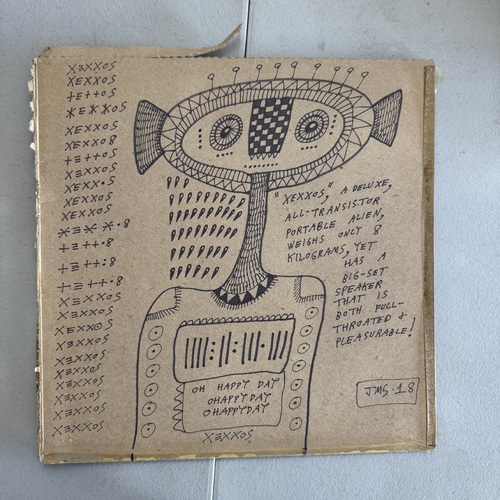 XƎXXOS
XEXXOS
+E++OS
ӾEӾӾOS
XEXXOS
XEXXO8
+E++OS
XƎXXOS
XEXX•S
XEXXOS
XEXXOS
+E++•8
+E++:8
+E++:8
XEXXOS
XƎXXOS
XEXXOS
XƎXXOS
XƎXXOS
XƎXXOS
XƎXXOS
XƎXXOS
XƎXXOS
XƎXXOS
"XEXXOS," A DELUXE,
ALL-TRANSISTOR
PORTABLE ALIEN,
WEIGHS ONLY 8
KILOGRAMS, YET
HAS A
BIG-SET
SPEAKER
THAT IS
BOTH FULL-
THROATED &
PLEASURABLE!
OH HAPPY DAY
OHAPPYDAY
OHAPPYDAY
XƎXXOS
JMS·18